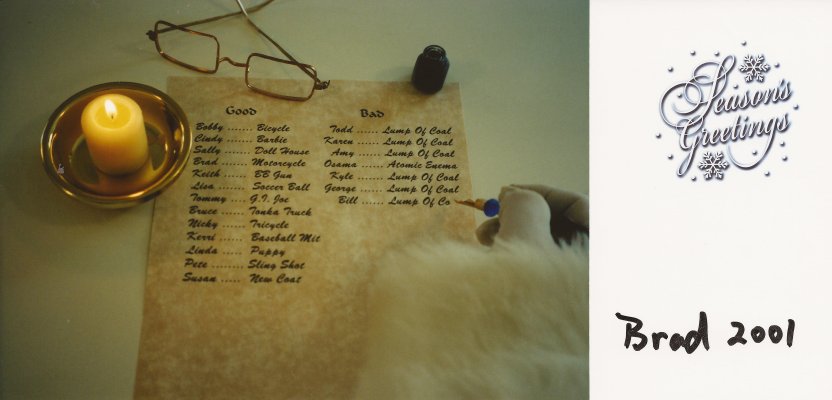 Good
Bobby ....... Bicycle
Cindy ....... Barbie
Sally ....... Doll House
Brad ........ Motorcycle
Keith ....... BB Gun
Lisa ........ Soccer Ball
Tommy ...... G.I. Joe
Bruce ...... Tonka Truck
Nicky ...... Tricycle
Kerri ...... Baseball Mit
Linda ..... Puppy
Pete ........ Sling Shot
Susan ..... New Coat
Bad
Todd ...... Lump Of Coal
Karen ...... Lump Of Coal
Amy ...... Lump Of Coal
Osama ..... Atomic Enema
Kyle ...... Lump Of Coal
George ...... Lump Of Coal
Bill ..... Lump Of Co
Season's
Greetings
Brad 2001